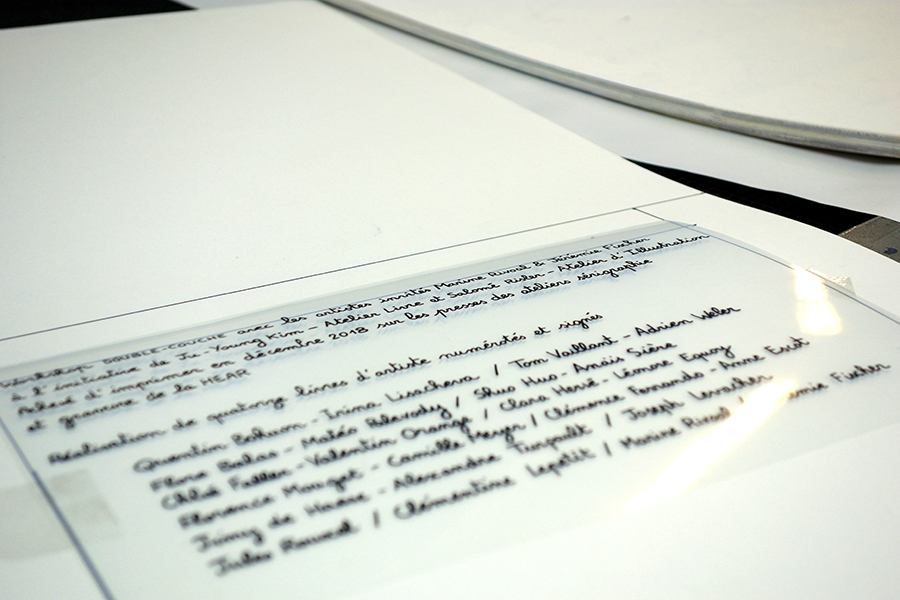 Workshop DOUBLE-COUCHE avec les artistes invités Marine Rivoal & Jérémie Fischer
à l'initiative de Ju-Young Kim - Atelier Livre et Salomé Risler - Atelier d'Illustration
Achevé d'imprimer en décembre 2018 sur les presses des ateliers sérigraphie
et gravure de la HEAR
Réalisation de quatorze livres d'artiste numérotés et signés
Quentin - Irina Lisacheva / Tom Vaillant - Adrien Weber
Flore Balas - Matéo / Shuo Huo - Anaïs Sière
Chloé - Valentin Orange / Clara Hervé - Lénore Equoy
Florence - Camille Meyer / Clémence Fernando - Anne Escot
de - Alexandre / Joseph
Jules / Clémentine Lepetit / Marine Fischer